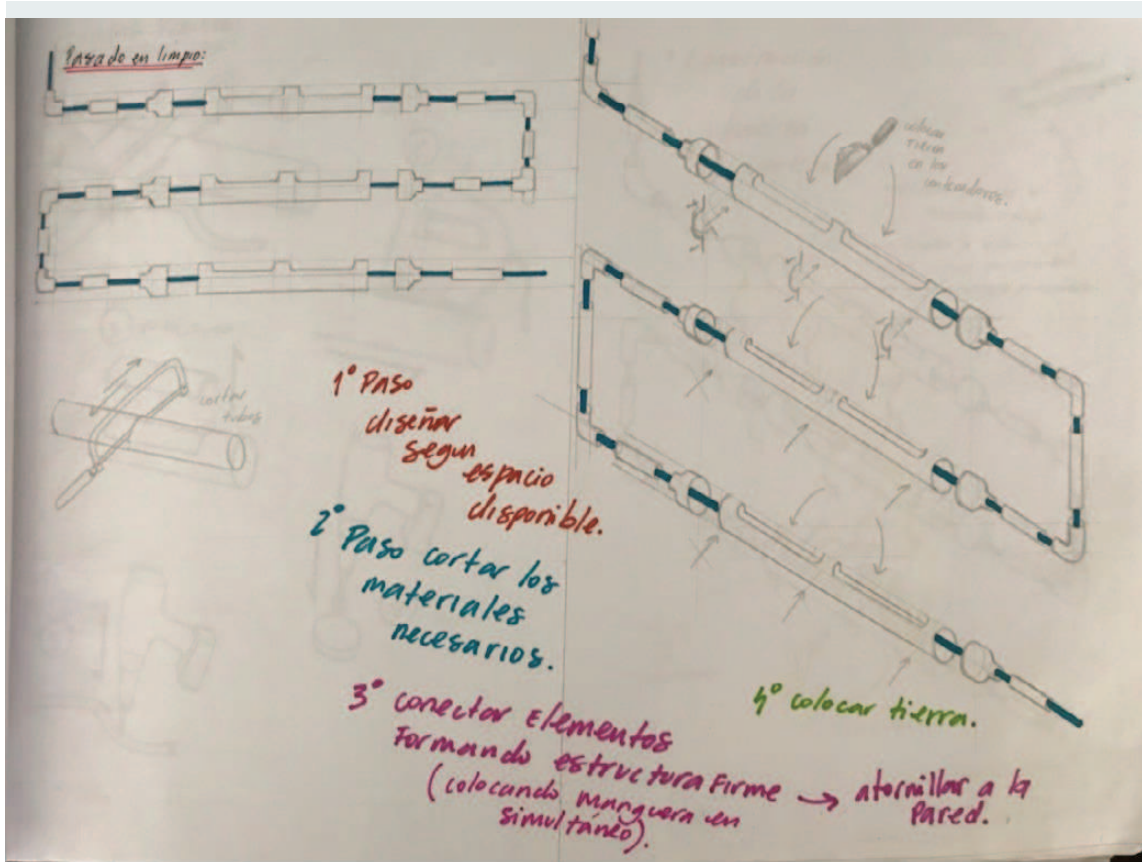 Pasado en limpio:
colocar
tierra
en los
contenedores.
cortar
tubos
1° Paso
diseñar
segun
espacio
disponible.
2° Paso cortar los
materiales
necesarios.
3° conectar Elementos
Formando estructura Firme → atornillar a la
(colocando manguera en
Pared.
simultáneo).
4° colocar tierra.